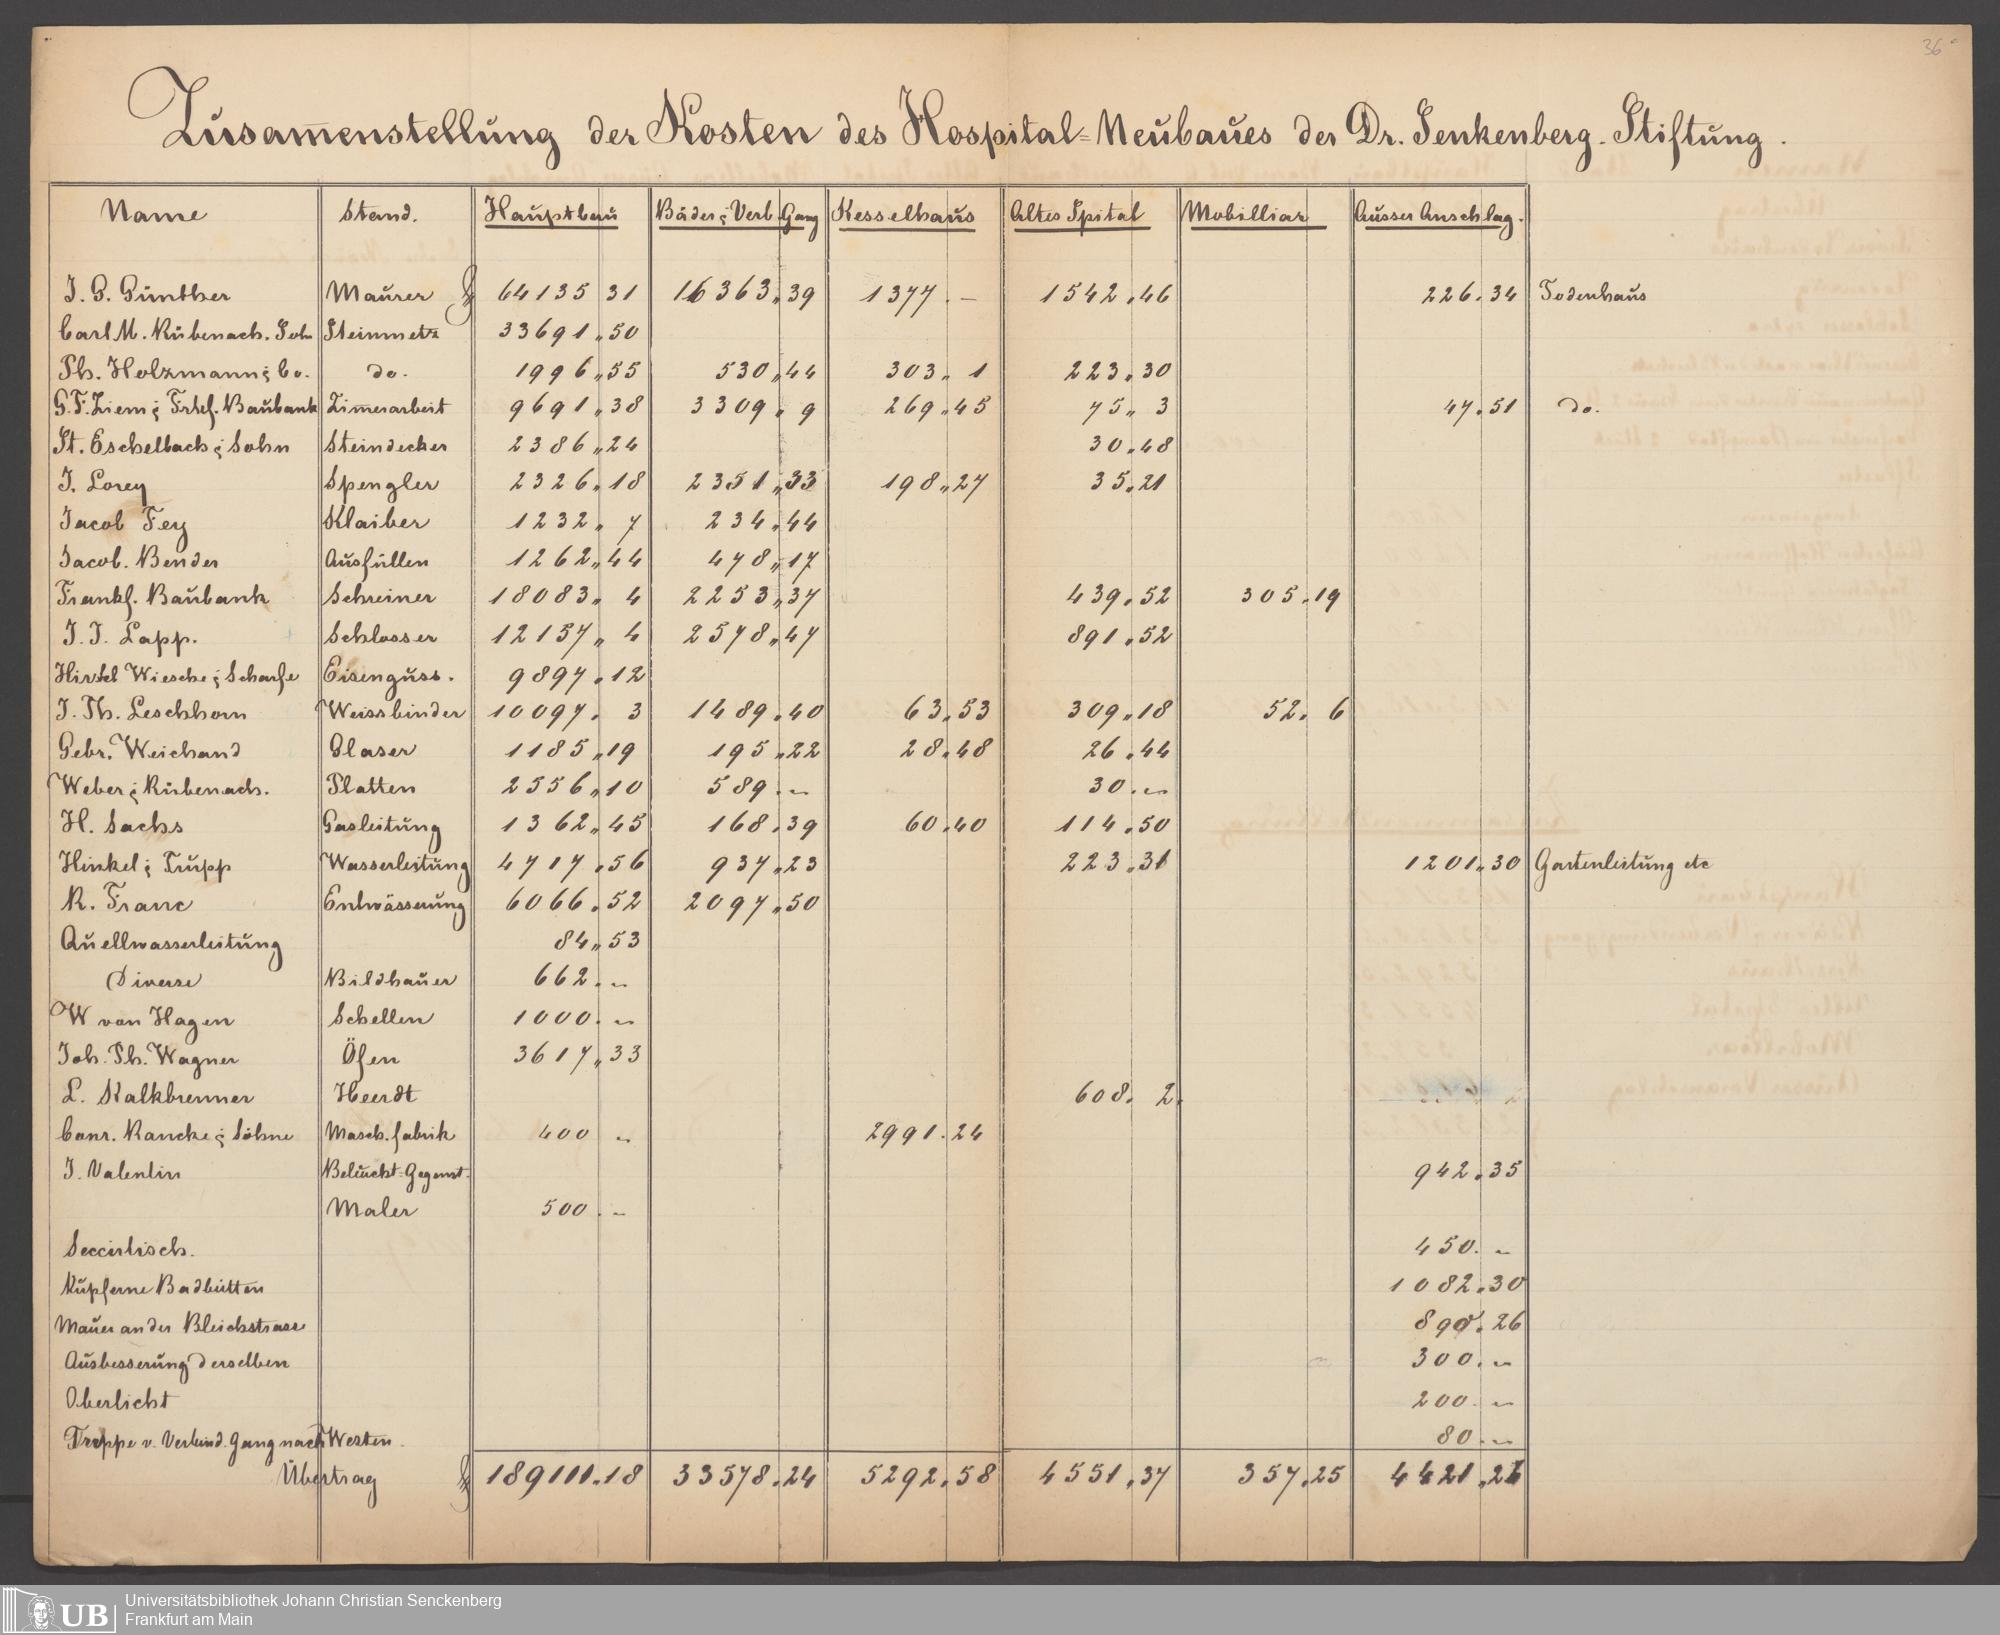 36
Zusam̅enstellung der Kosten des Hospital-Neubaues der Dr. Senkenberg. Stiftung.
Name Stand. Hauptbau Bäder; Verb. Gang Kesselhaus Altes Spital Mobilliar Ausser Anschlag.
J. G. Günther Maurer 64135 31 16363.39 1377.— 1542.46 226.34 Todenhaus
Carl M. Rübenach. Sohn Steinmetz 33691.50
Ph. Holzmann; Co. do. 1996.55 530.44 303. 1 223.30
G. F. Ziem; Frkf. Baubank Zim̅erarbeit 9691.38 3309. 9 269.45 75. 3 47.51 do.
St. Eschelbach; Sohn Steindecker 2386.24 30.48
J. Lorey Spengler 2326.18 2351.33 198.27 35.21
Jacob Fey Klaiber 1232. 7 234.44
Jacob. Bender Ausfüllen 1262.44 478.17
Frankf. Baubank Schreiner 18083. 4 2253.37 439.52 305.19
J. J. Lapp. Schlosser 12157. 4 2578.47 891.52
Hirtel Wiesche; Scharfe Eisenguss. 9897.12
J. Th. Leschhorn Weissbinder 10097. 3 1489.40 63.53 309.18 52. 6
Gebr. Weichand Glaser 1185.19 195.22 28.48 26.44
Weber; Rübenach. Platten 2556.10 589.— 30.—
H. Sachs Gasleitung 1362.45 168.39 60.40 114.50
Hinkel; Trupp Wasserleitung 4717.56 937.23 223.31 1201.30 Gartenleitung etc
R. Franc Entwässerung 6066.52 2097.50
Quellwasserleitung 84.53
Diverse Bildhauer 662.—
W von Hagen Schellen 1000.—
Joh. Ph. Wagner Öfen 3617.33
L. Kalkbrenner Heerdt 608. 2.
Conr. Rancke; Söhne Masch. fabrik 400 — 2991.24
J. Valentin Beleucht-Gegenst. 942.35
Maler 500.—
Seccirtisch. 450.—
Kupferne Badbütten 1082.30
Mauer an der Bleichstrasse 890.26
Ausbesserung derselben 300.—
Oberlicht 200.—
Treppe v. Verbind. Gang nach Westen. 80.—
Übertrag 189111.18 33578.24 5292.58 4551.37 357.25 4421.26
UB
Universitätsbibliothek Johann Christian Senckenberg
Frankfurt am Main